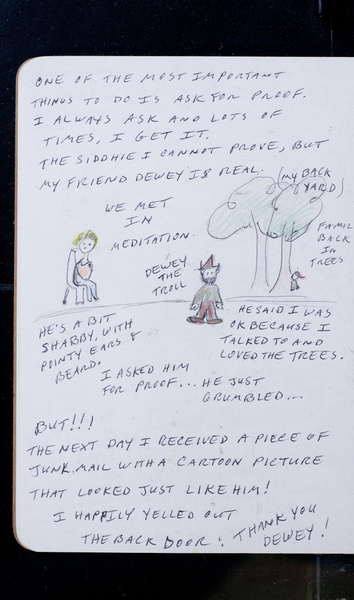 ONE OF THE MOST IMPORTANT
THINGS TO DO IS ASK FOR PROOF.
I ALWAYS ASK AND LOTS OF
TIMES, I GET IT.
THE SIDDHIE I CANNOT PROVE, BUT
MY FRIEND DEWEY IS REAL.
(MY BACK
YARD)
WE MET
IN
MEDITATION.
FAMIL
BACK
IN
TREES
DEWEY
THE
TROLL
HE'S A BIT
SHABBY, WITH
POINTY EARS &
BEARD.
HE SAID I WAS
OK BECAUSE I
TALKED TO AND
LOVED THE TREES.
I ASKED HIM
FOR PROOF... HE JUST
GRUMBLED...
BUT!!!
THE NEXT DAY I RECEIVED A PIECE OF
JUNK MAIL WITH A CARTOON PICTURE
THAT LOOKED JUST LIKE HIM!
I HAPPILY YELLED OUT
THE BACK DOOR: THANK YOU
DEWEY!